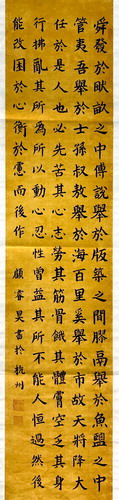 舜發於畎畝之中傅說舉於版築之間膠鬲舉於魚鹽之中
管夷吾舉於士孫叔敖舉於海百里奚舉於市故天將降大
任於是人也必先苦其心志勞其筋骨餓其體膚空乏其身
行拂亂其所為所以動心忍性增益其所不能人恒過然後
能改困於心衡於慮而後作 顧睿昊書於杭州